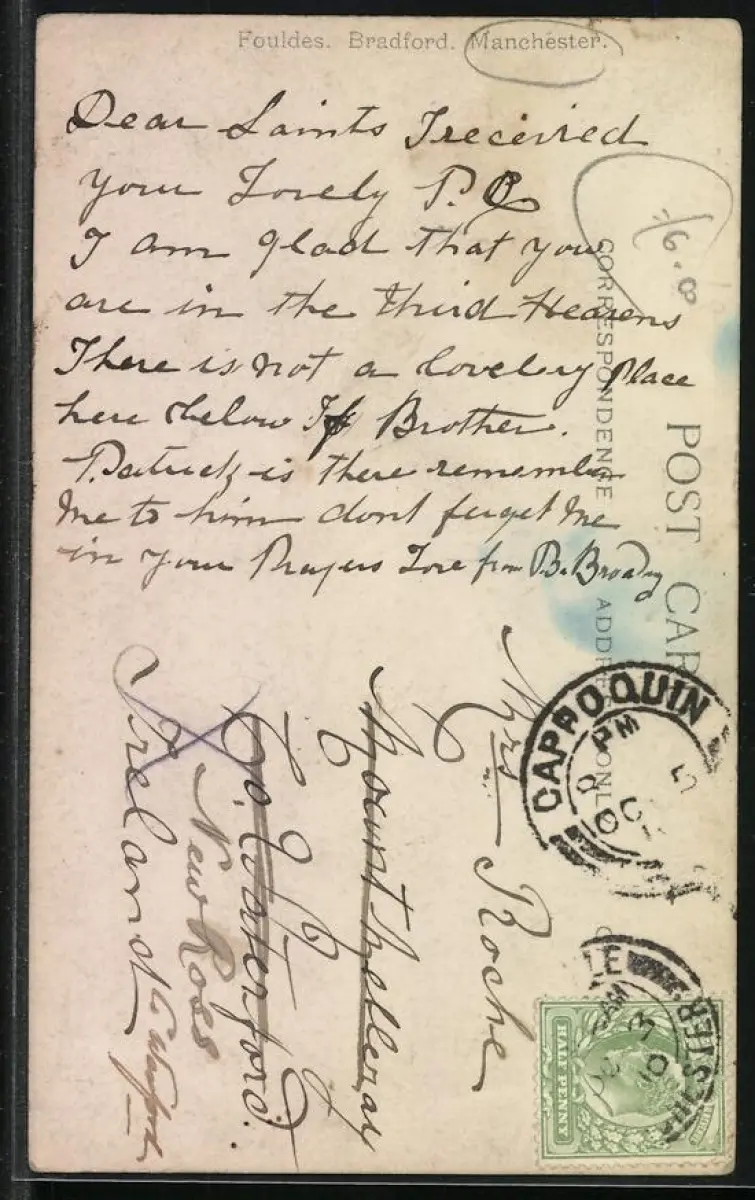 Fouldes. Bradford. Manchester.
Dear Saints I received
your Lovely P. C
I am glad that you
are in the third Heavens
There is not a lovelery Place
here below If Brother.
Patrick is there remember
me to him dont ferget me
in your Prayers Love from B. Broady
-/6.8
POST CAR
CORRESPONDENCE
ADDRE ONLY
Mrs Roche
Mount Melleray
Co. Waterford.
New Ross
Ireland
CAPPOQUIN
PM
5
OC
10
LE
AM
3
10
HESTER
HALF PENNY